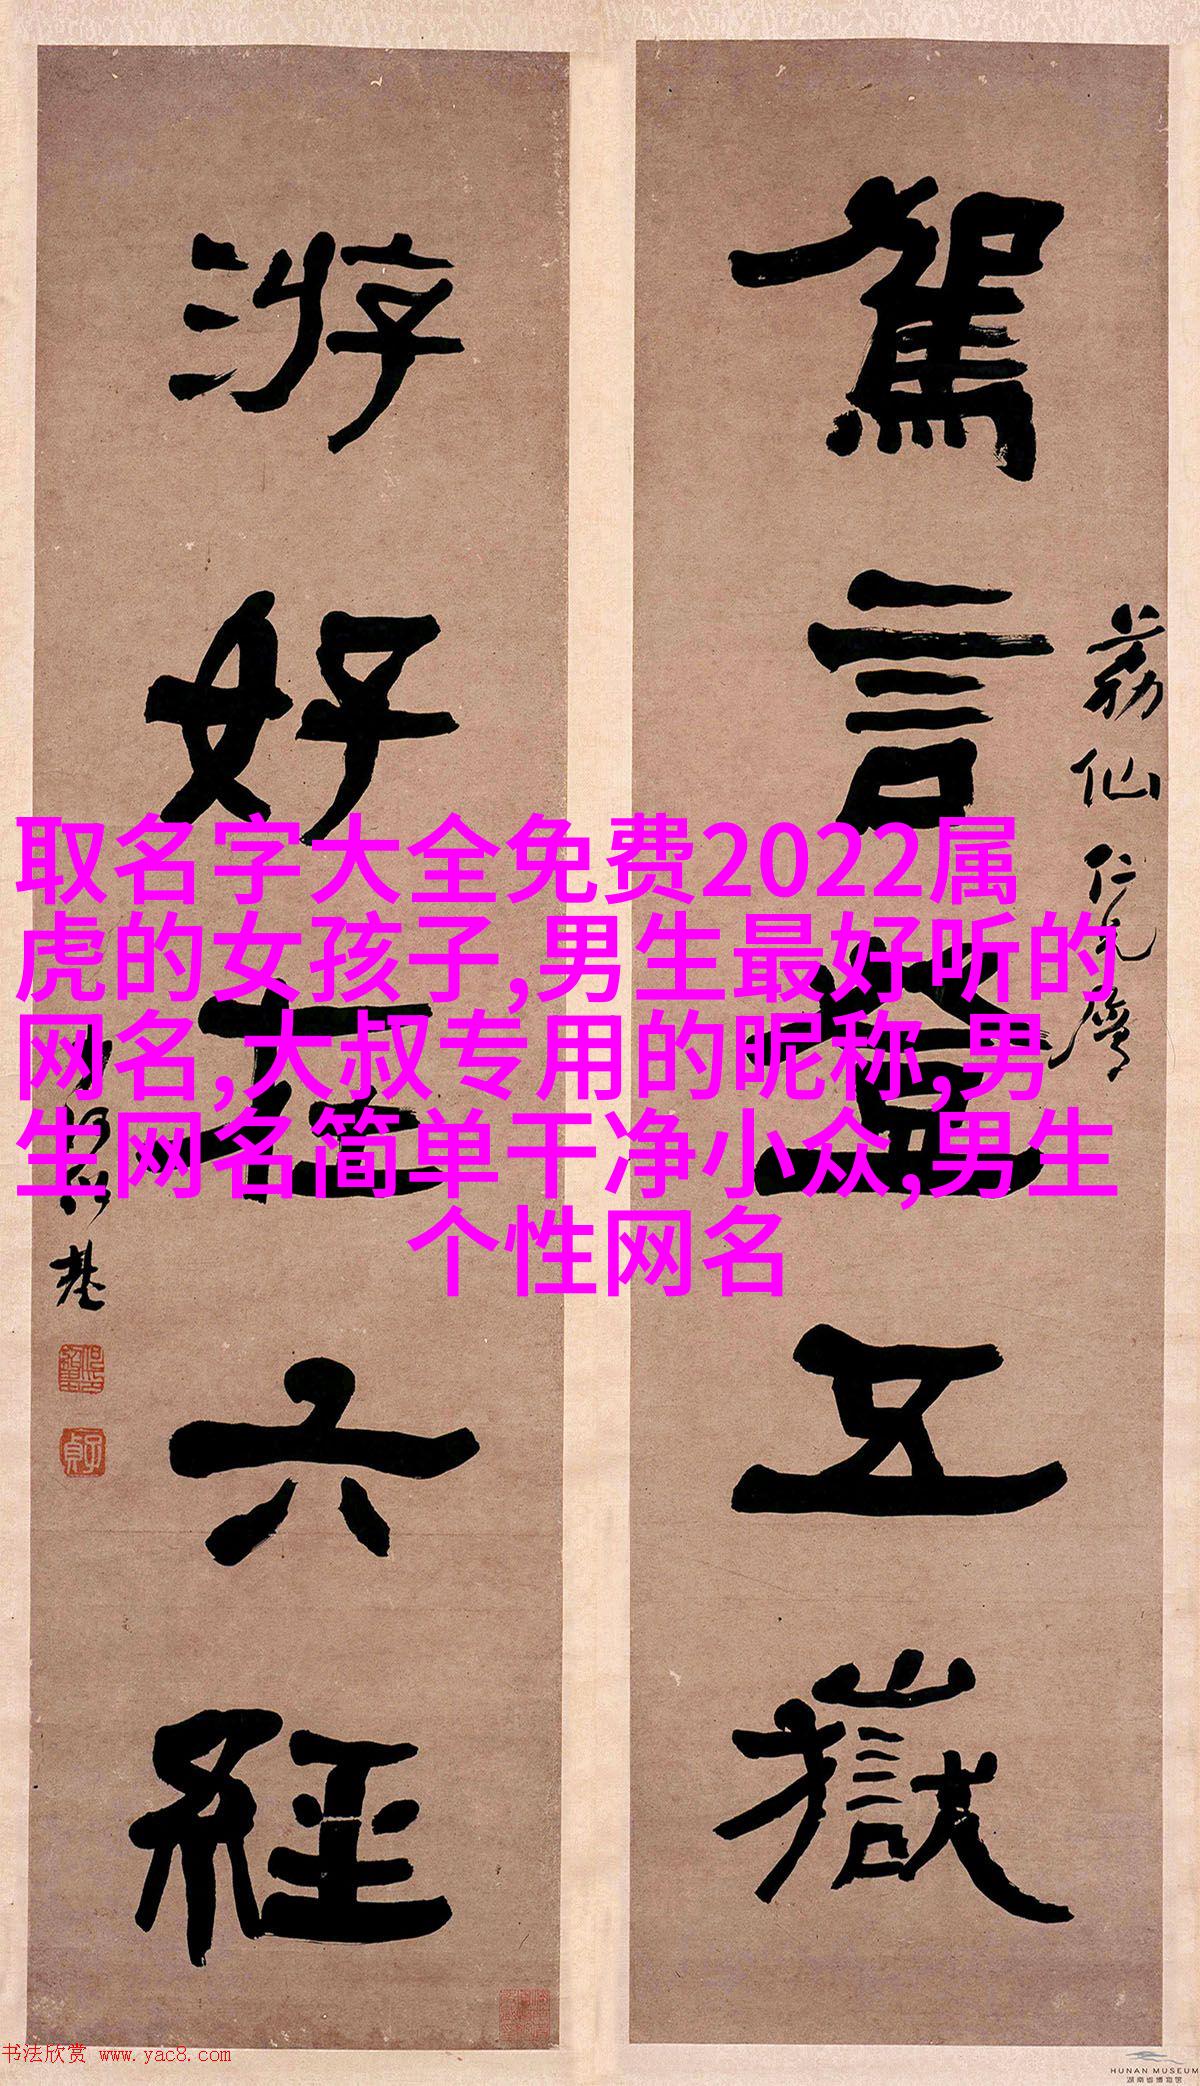 駕言登五嶽
荔仙仁兄屬
游好在六經
何紹基
取名字大全免费2022属
虎的女孩子,男生最好听的
网名,大叔专用的昵称,男
生网名简单干净小众,男生
个性网名
书法欣赏 www.yac8.com
HUNAN MUSEUM
湖南省博物馆